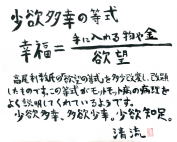 少欲多幸の等式
幸福=手に入れる物や金
欲望
高尾利数氏が欲望の等式を多少改変し、改題し
たものです。この等式がモットモット病の病理を
よく説明してくれているようです。
少欲多幸、多欲少幸。少欲知足。
清流